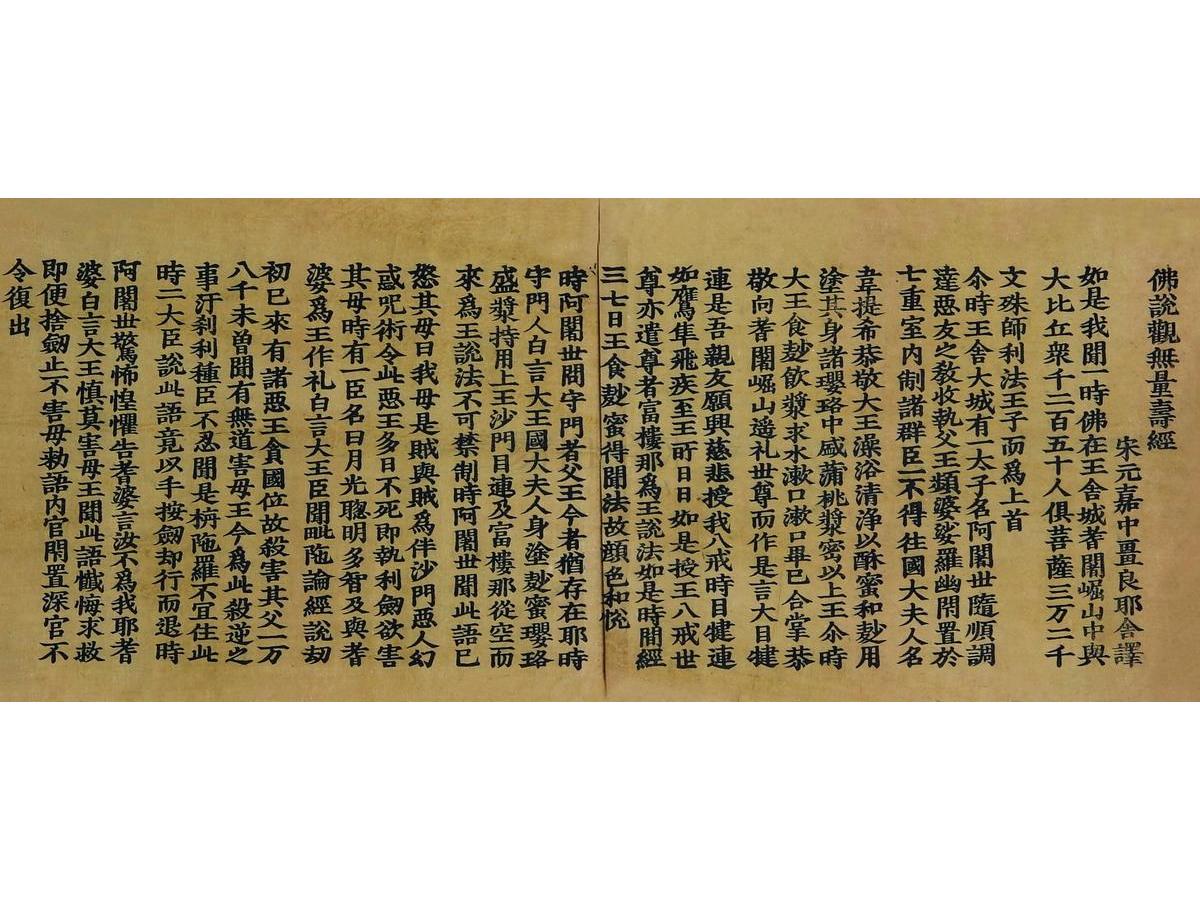 佛說觀無量壽經
宋元嘉中畺良耶舍譯
如是我聞一時佛在王舍城耆闍崛山中與
大比丘衆千二百五十人俱菩薩三万二千
文殊師利法王子而爲上首
尒時王舍大城有一太子名阿闍世隨順調
達惡友之教收執父王頻婆娑羅幽閇置於
七重室內制諸群臣一不得往國大夫人名
韋提希恭敬大王澡浴清淨以酥蜜和麨用
塗其身諸瓔珞中盛蒲桃漿密以上王尒時
大王食麨飲漿求水漱口漱口畢已合掌恭
敬向耆闍崛山遥礼世尊而作是言大目犍
連是吾親友願興慈悲授我八戒時目犍連
如鷹隼飛疾至王所日日如是授王八戒世
尊亦遣尊者富樓那爲王說法如是時間經
三七日王食麨蜜得聞法故顏色和悅
時阿闍世問守門者父王今者猶存在耶時
守門人白言大王國大夫人身塗麨蜜瓔珞
盛漿持用上王沙門目連及富樓那從空而
來爲王說法不可禁制時阿闍世聞此語已
怒其母曰我母是賊與賊爲伴沙門惡人幻
惑呪術令此惡王多日不死即執利劒欲害
其母時有一臣名曰月光聰明多智及與耆
婆爲王作礼白言大王臣聞毗陁論經說劫
初已來有諸惡王貪國位故殺害其父一万
八千未曾聞有無道害母王今爲此殺逆之
事汙刹利種臣不忍聞是栴陁羅不宜住此
時二大臣說此語竟以手按劒却行而退時
阿闍世驚怖惶懼告耆婆言汝不爲我耶耆
婆白言大王慎莫害母王聞此語懺悔求救
即便捨劒止不害母勑語內官閇置深宮不
令復出